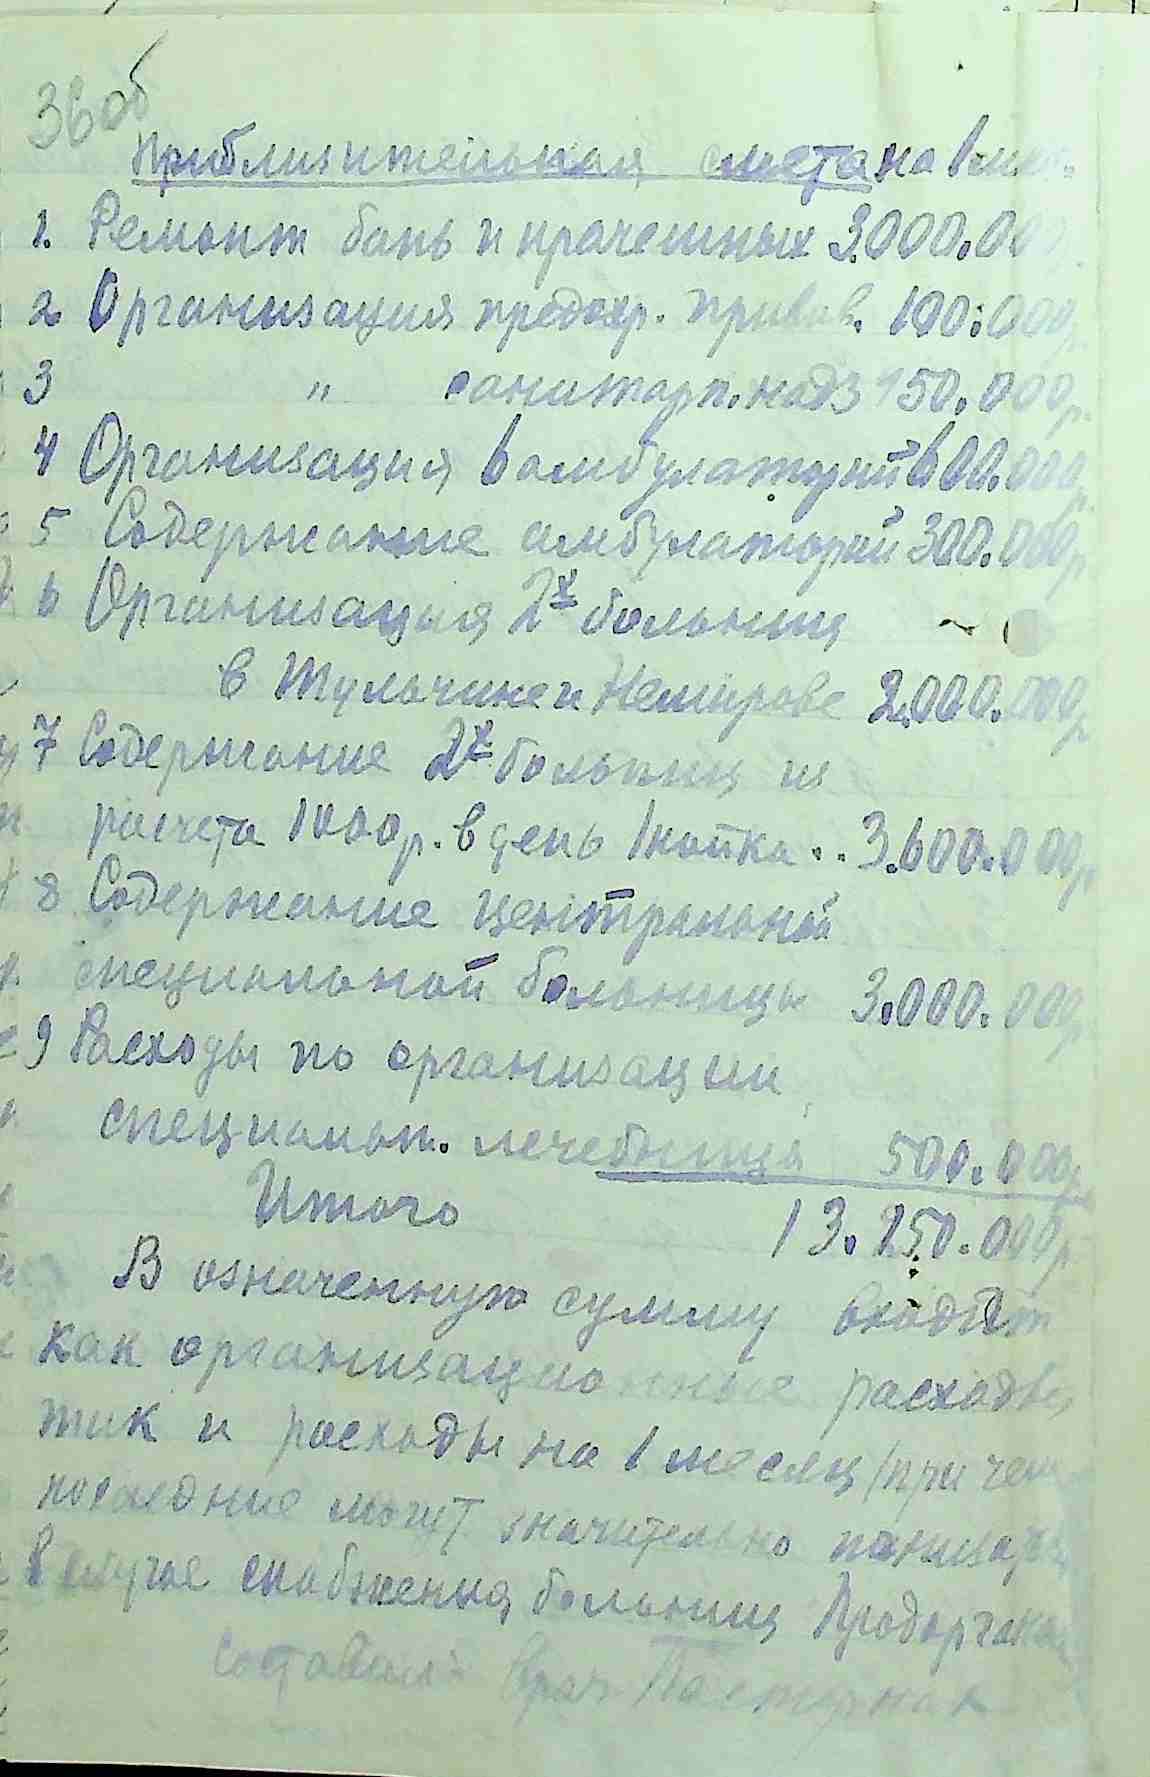 36об
Приблизительная смета на 1 мес.
1. Ремонт бань и прачешных 3.000.000
2 Организация предохр. привив. 100.000р.
3 " санитарн. надз 150.000р.
4 Организация 6 амбулаторий 600.000р.
5 Содержание амбулаторий 300.000р
6 Организация 2х больниц
в Тульчине и Немирове 2.000.000р
7 Содержание 2х больниц из
расчета 1000р. в день 1 койка .. 3.600.000р
8 Содержание центральной
специальной больницы 3.000.000р
9 Расходы по организации
специальн. лечебница 500.000р
Итого 13.250.000р
В означенную сумму входят
как организационные расходы,
так и расходы на 1 месяц (при чем
последние могут значительно
в случае снабжения больниц Продорганами
Составил врач Пастернак